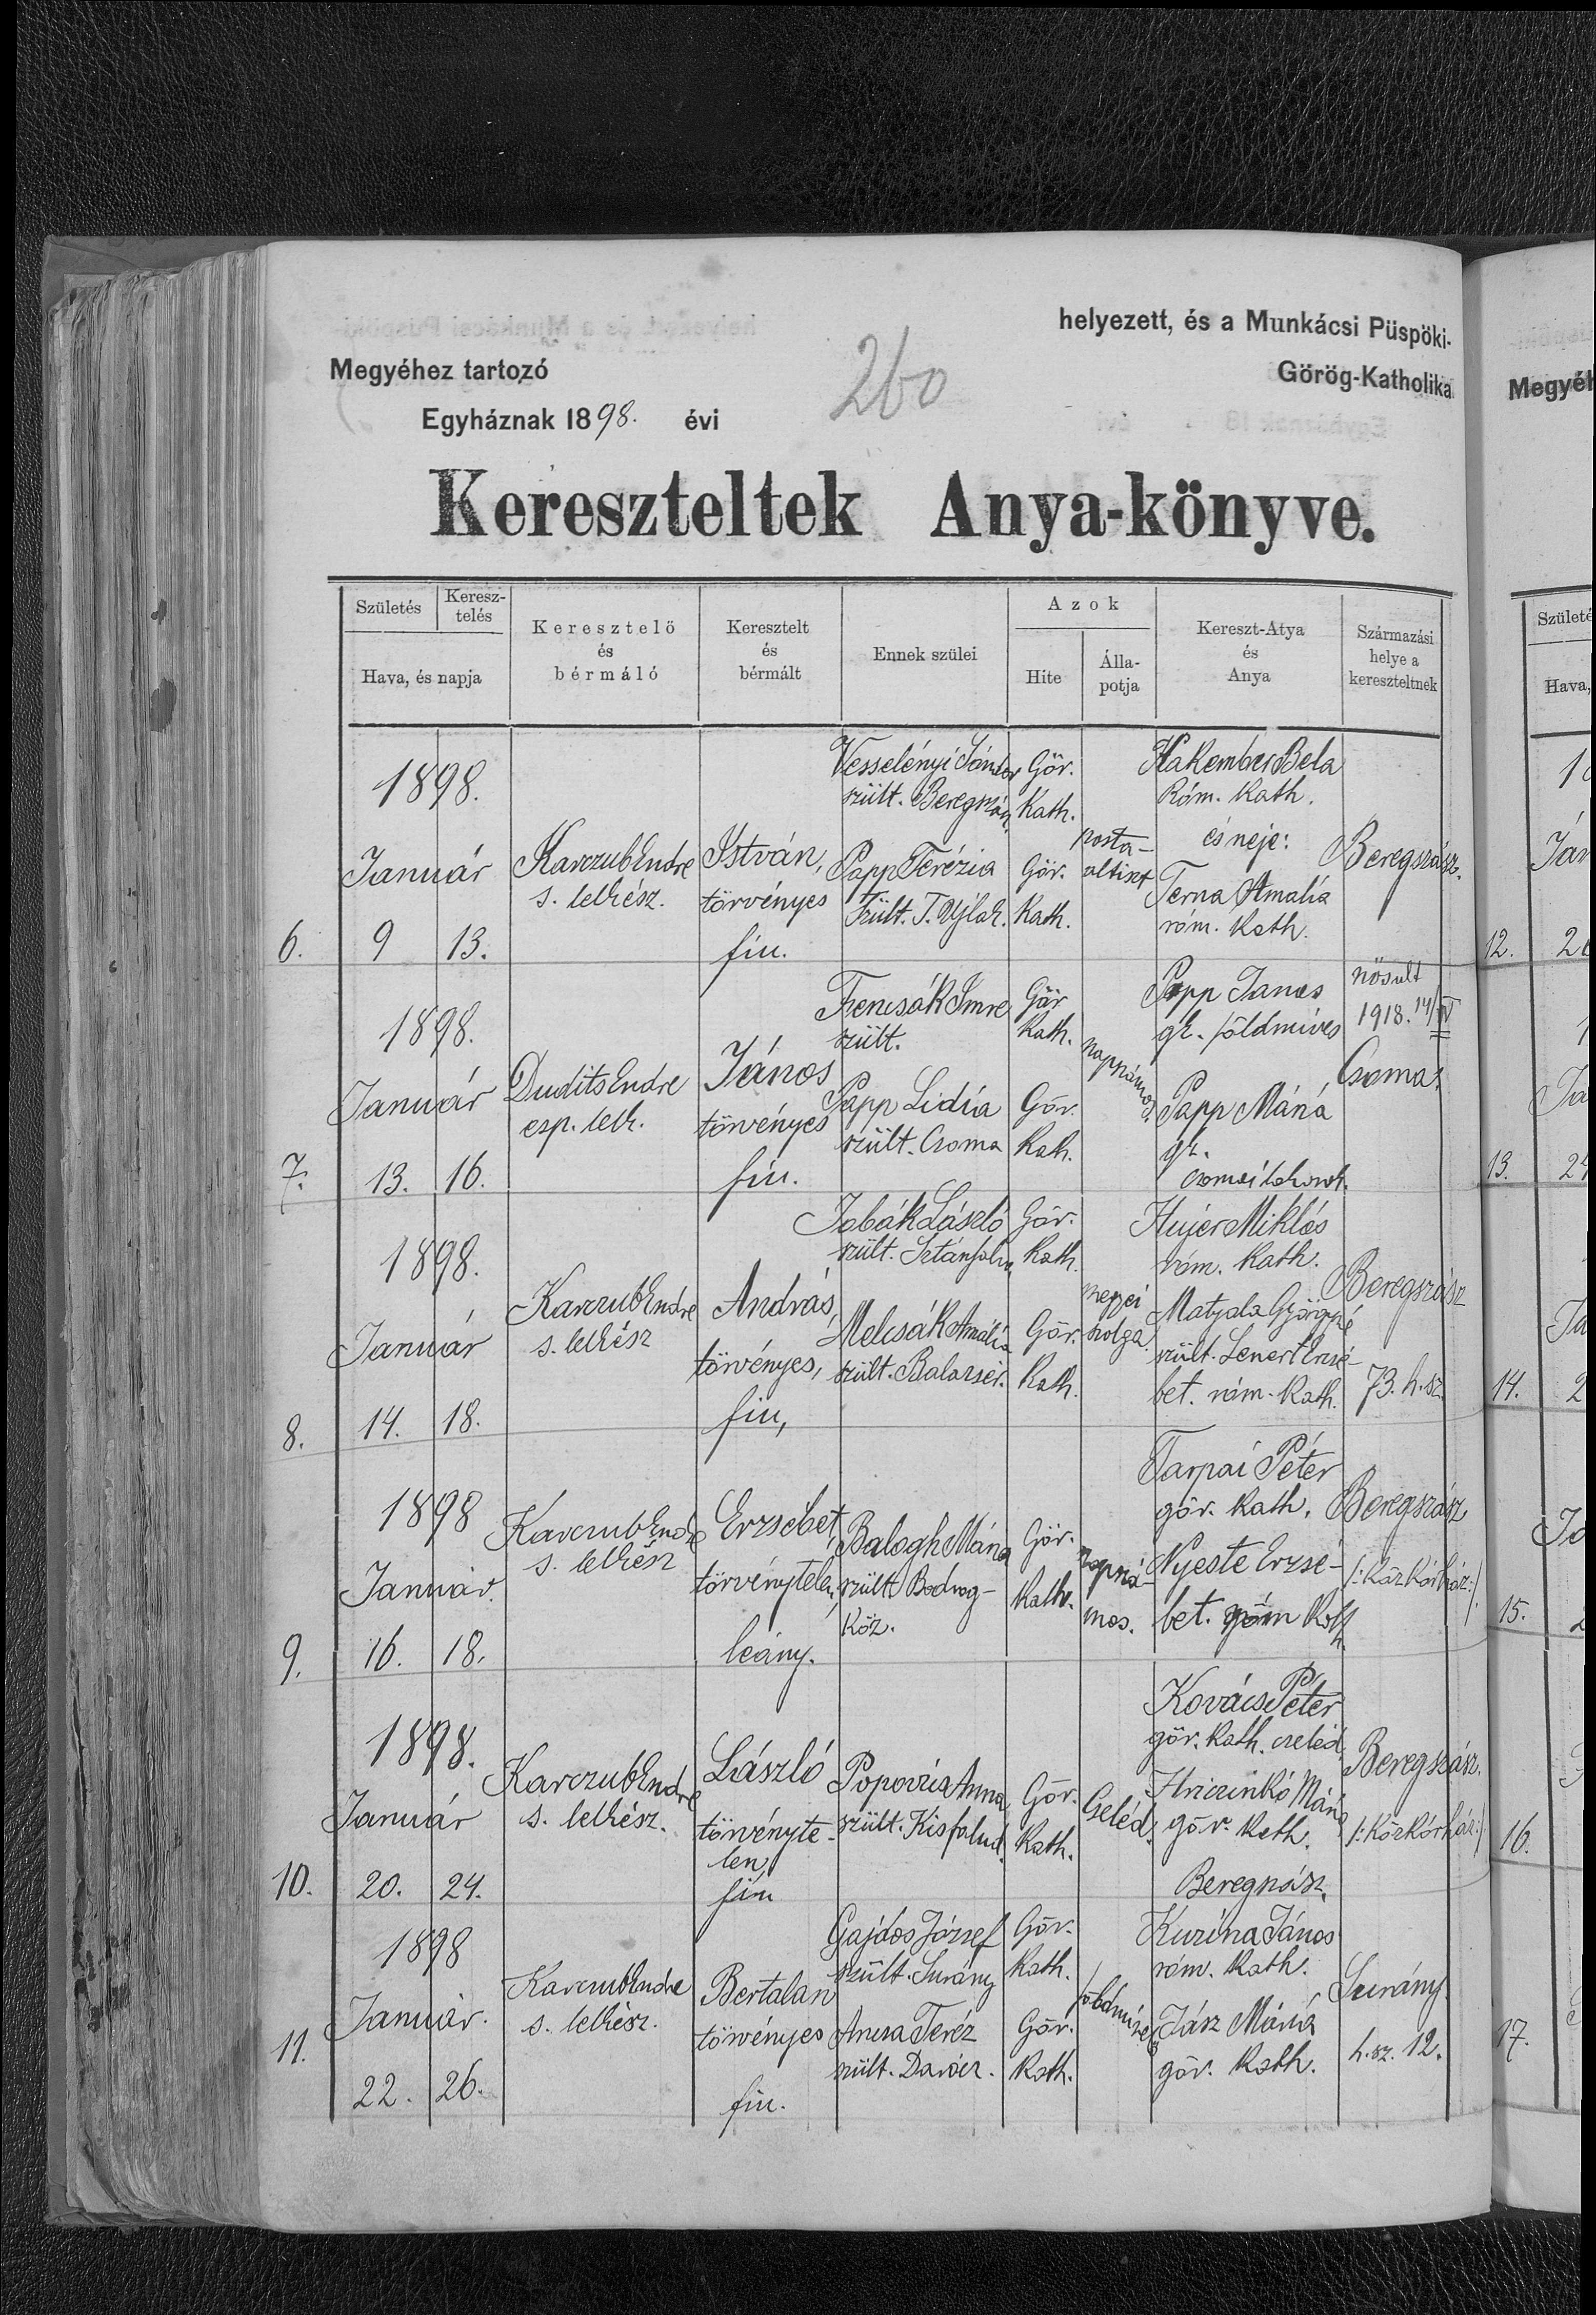 helyezett, és a Munkácsi Püspöki-
Megyéhez tartozó
Görög-Katholika
260
Egyháznak 1898. évi
Kereszteltek Anya-könyve.
Születés
Keresz-
telés
Hava, és napja
Keresztelő
és
bérmáló
Keresztelt
és
bérmált
Ennek szülei
Azok
Hite
Álla-
potja
Kereszt-Atya
és
Anya
Származási
helye a
kereszteltnek
6.
1898.
Január
9 13.
Karczub Endre
s. lelkész.
István,
törvényes
fiu.
Vesselényi Sándor
szült. Beregszász.
Papp Terézia
Szült. T. Ujlak.
Gör.
Kath.
Gör.
Kath.
posta-
altiszt
Hakember Bela
Róm. Kath.
és neje:
Terna Amalia
róm. Kath.
Beregszász.
7.
1898.
Január
13. 16.
Dudits Endre
esp. lelk.
János
törvényes
fiu.
Frencsák Imre
szült.
Papp Lidia
szült. Csoma
Gör
Kath.
Gör.
Kath.
napszámos.
Papp Janos
gk. földmives
Papp Mária
gk.
csomai lakosok.
nösult
1918. 14/IV
Csoma.
8.
1898.
Január
14. 18.
Karczub Endre
s. lelkész
András,
törvényes,
fiu,
Jobák László
szült. Sztánfalva
Melcsák Amália
szült. Balazsér.
Gör.
Kath.
Gör.
Kath.
megyei
szolga
Hujer Miklós
róm. Kath.
Matyala Györgyné
szült. Lenert Erzsé-
bet. róm. Kath.
Beregszász
73. h. sz.
9.
1898
Január.
16. 18.
Karczub Endre
s. lelkész
Erzsebet,
törvénytelen,
leány.
Balogh Mária
szült. Bodrog-
köz.
Gör.
Kath.
napszá-
mos.
Tarpai Péter
gör. Kath.
Nyeste Erzsé-
bet. róm Kath.
Beregszász
/:Közkórház:/
10.
1898.
Január
20. 24.
Karczub Endre
s. lelkész.
László
törvényte-
len,
fiu
Popovics Anna
szült. Kisfalud.
Gör.
Kath.
Cseléd.
Kovács Péter
gör. Kath. cseléd.
Hriczinkó Mária
gör. Kath.
Beregszász.
Beregszász.
/:Közkórház:/
11.
1898
Január.
22. 26.
Karczub Endre
s. lelkész.
Bertalan
törvényes
fiu.
Gajdos József
szült. Surány
Ancsa Teréz
szült. Darócz.
Gör.
Kath.
Gör.
Kath.
földmives
Kurina János
róm. Kath.
Jász Mária
gör. Kath.
Surány.
h. sz. 12.
Megyéh
Születé
Hava,
12.
13.
14.
15.
16.
17.